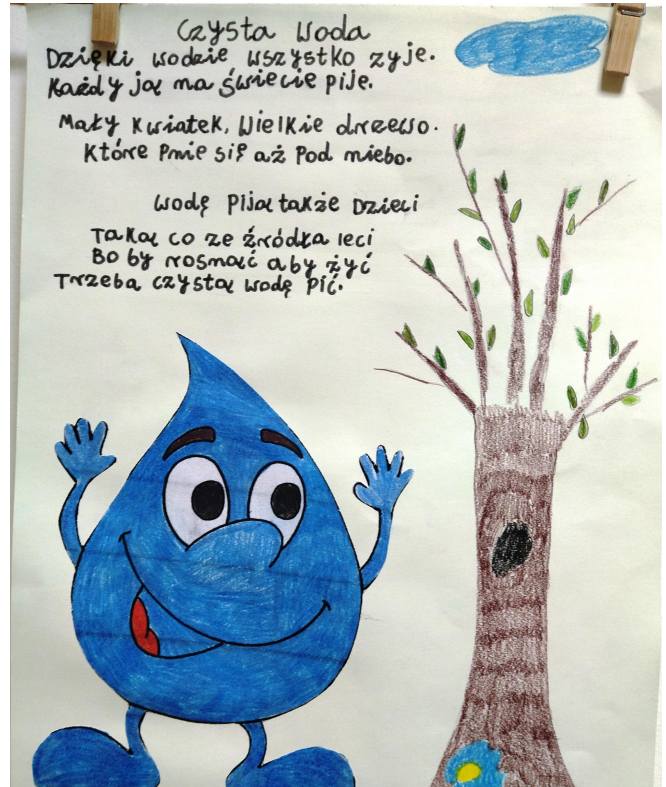 Czysta woda
Dzięki wodzie wszystko zyje.
Każdy ją na świecie pije.
Mały kwiatek, Wielkie drzewo.
Które Pnie się aż Pod niebo.
Wodę Piją także Dzieci
Taką co ze źródła leci
Bo by rosnąć aby żyć
Trzeba czystą wodę Pić.